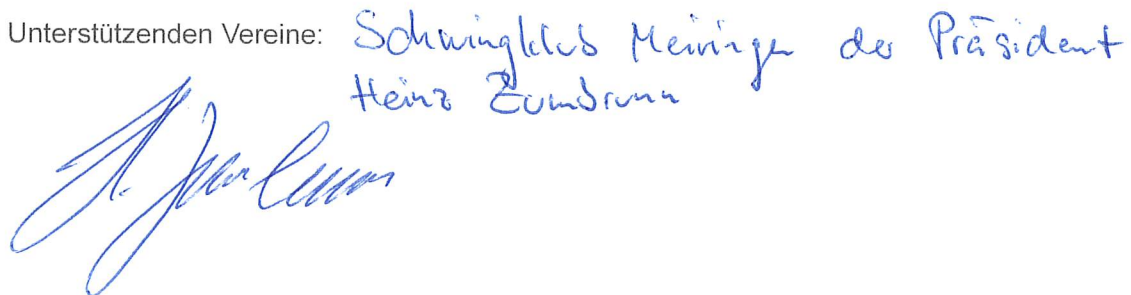 Unterstützenden Vereine: Schwingklub Meiringen der Präsident
Heinz Zumbrunn